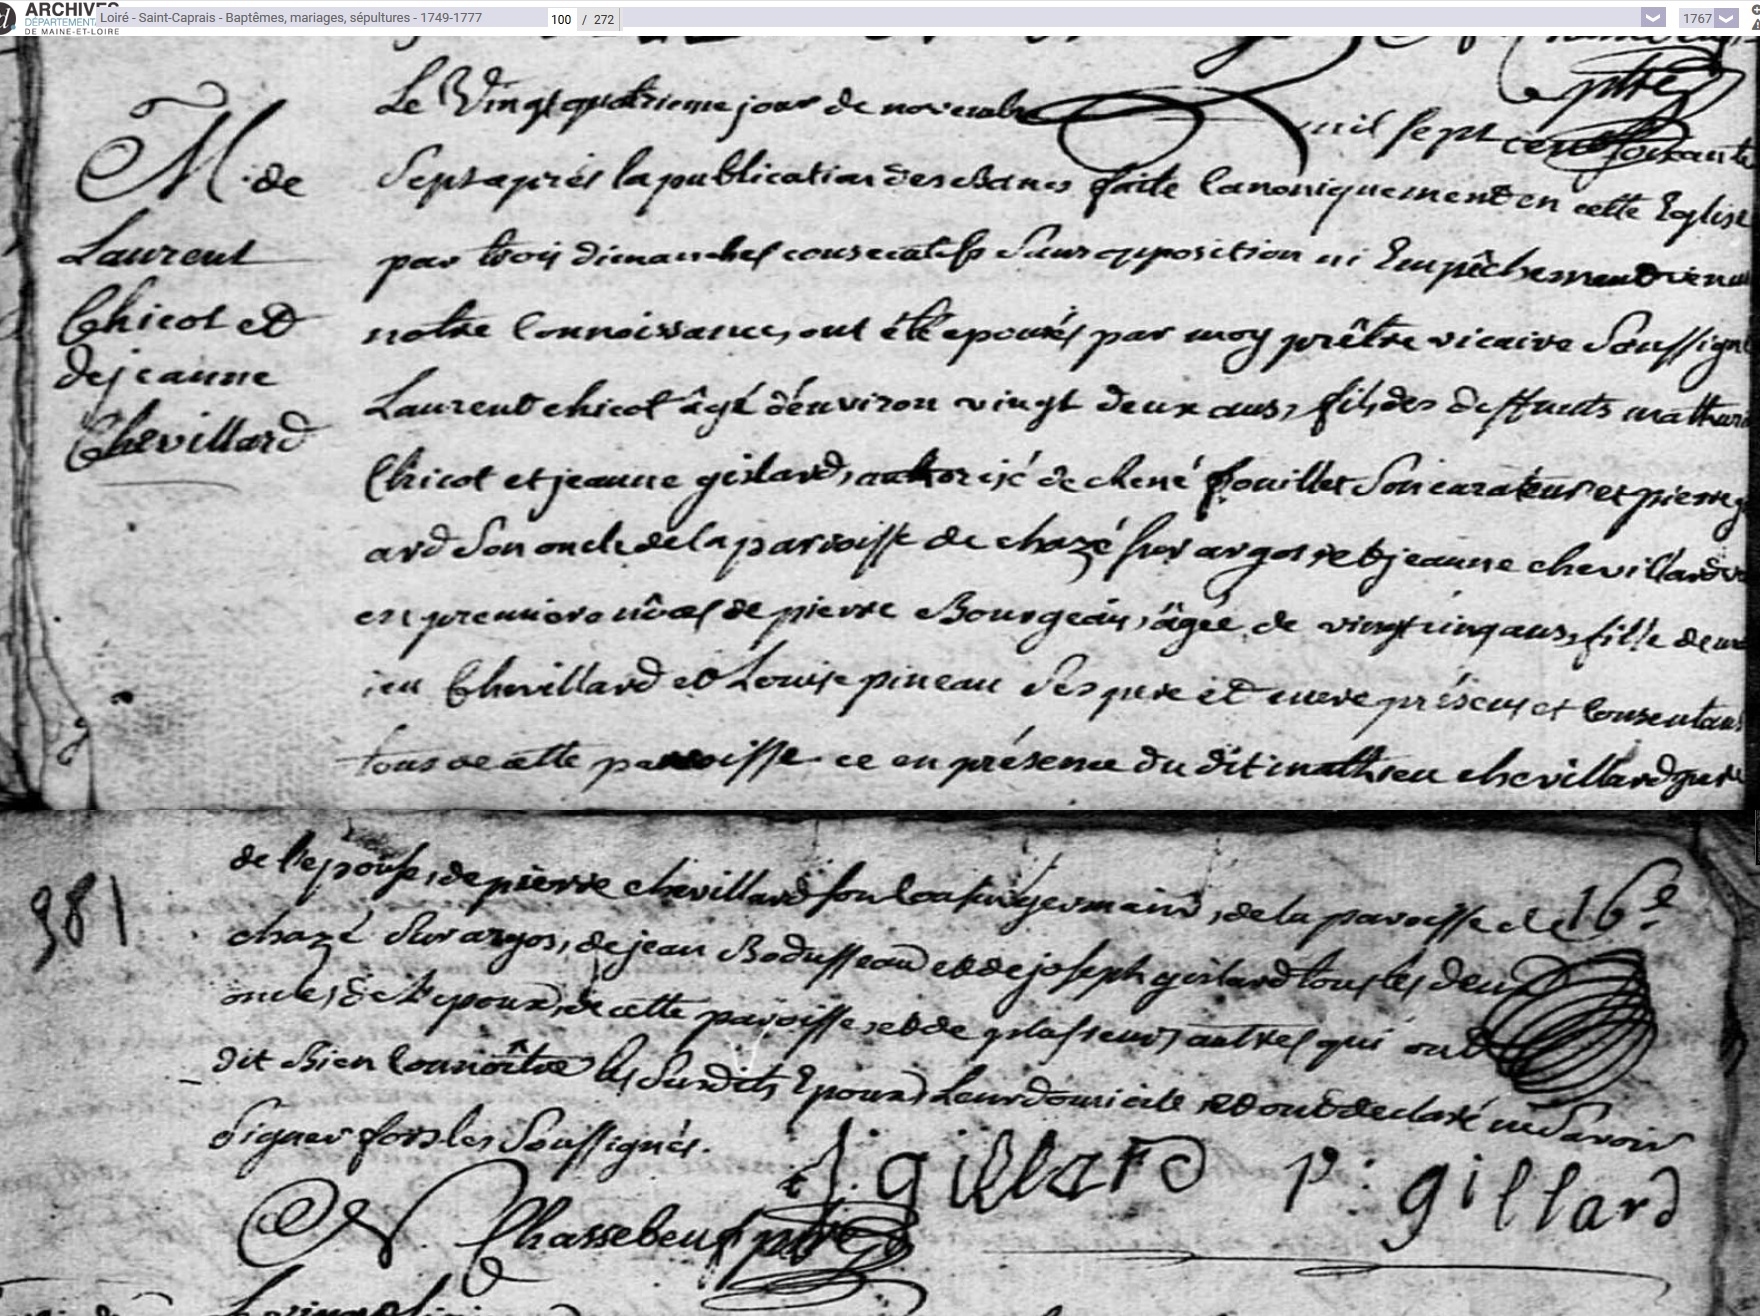 ARCHIVES
DÉPARTEMENTALES
DE MAINE-ET-LOIRE
Loiré - Saint-Caprais - Baptêmes, mariages, sépultures - 1749-1777
100 / 272
1767
ptre
M. de
Laurent
Chicot et
de jeanne
Chevillard
Le Vingt quatrieme jour de novembre mil sept cent soixante
Sept apriés la publication des Bancs faite Canoniquement en cette Eglise
par trois dimanches consecutifs Sans opposition ni Empêchement venu
notre Connoissance, ont été epousés par moy prêtre vicaire Soussigné
Laurent chicot âgé d'environ vingt deux ans, fils des deffunts mathuri
Chicot et jeanne gislard, authorisé de René fouillet Son curateur et pierre g
ard Son oncle de la paroisse de chazé sur argos, et jeanne chevillard v
en premiere nôces de pierre Bourgeais, âgée de vingt cinq ans, fille de m
ieu Chevillard et Louise pineau Ses pere et mere présens et Consentans
tous de cette paroisse ce en présence du dit mathieu chevillard pere
981
de l'epouse, de pierre chevillard son Cousin germain, de la paroisse de 16e
chazé Sur argos, de jean Bodusseau et de joseph gislard tous les deux
oncles de l'epoux, de cette paroisse, et de plusieurs autres qui ont
dit Bien Connoître les Surdits Epoux, Leur domicile, et ont declaré ne Savoir
Signer fors les Soussignés.
j. gillard P. gillard
N. Chassebeuf ptre